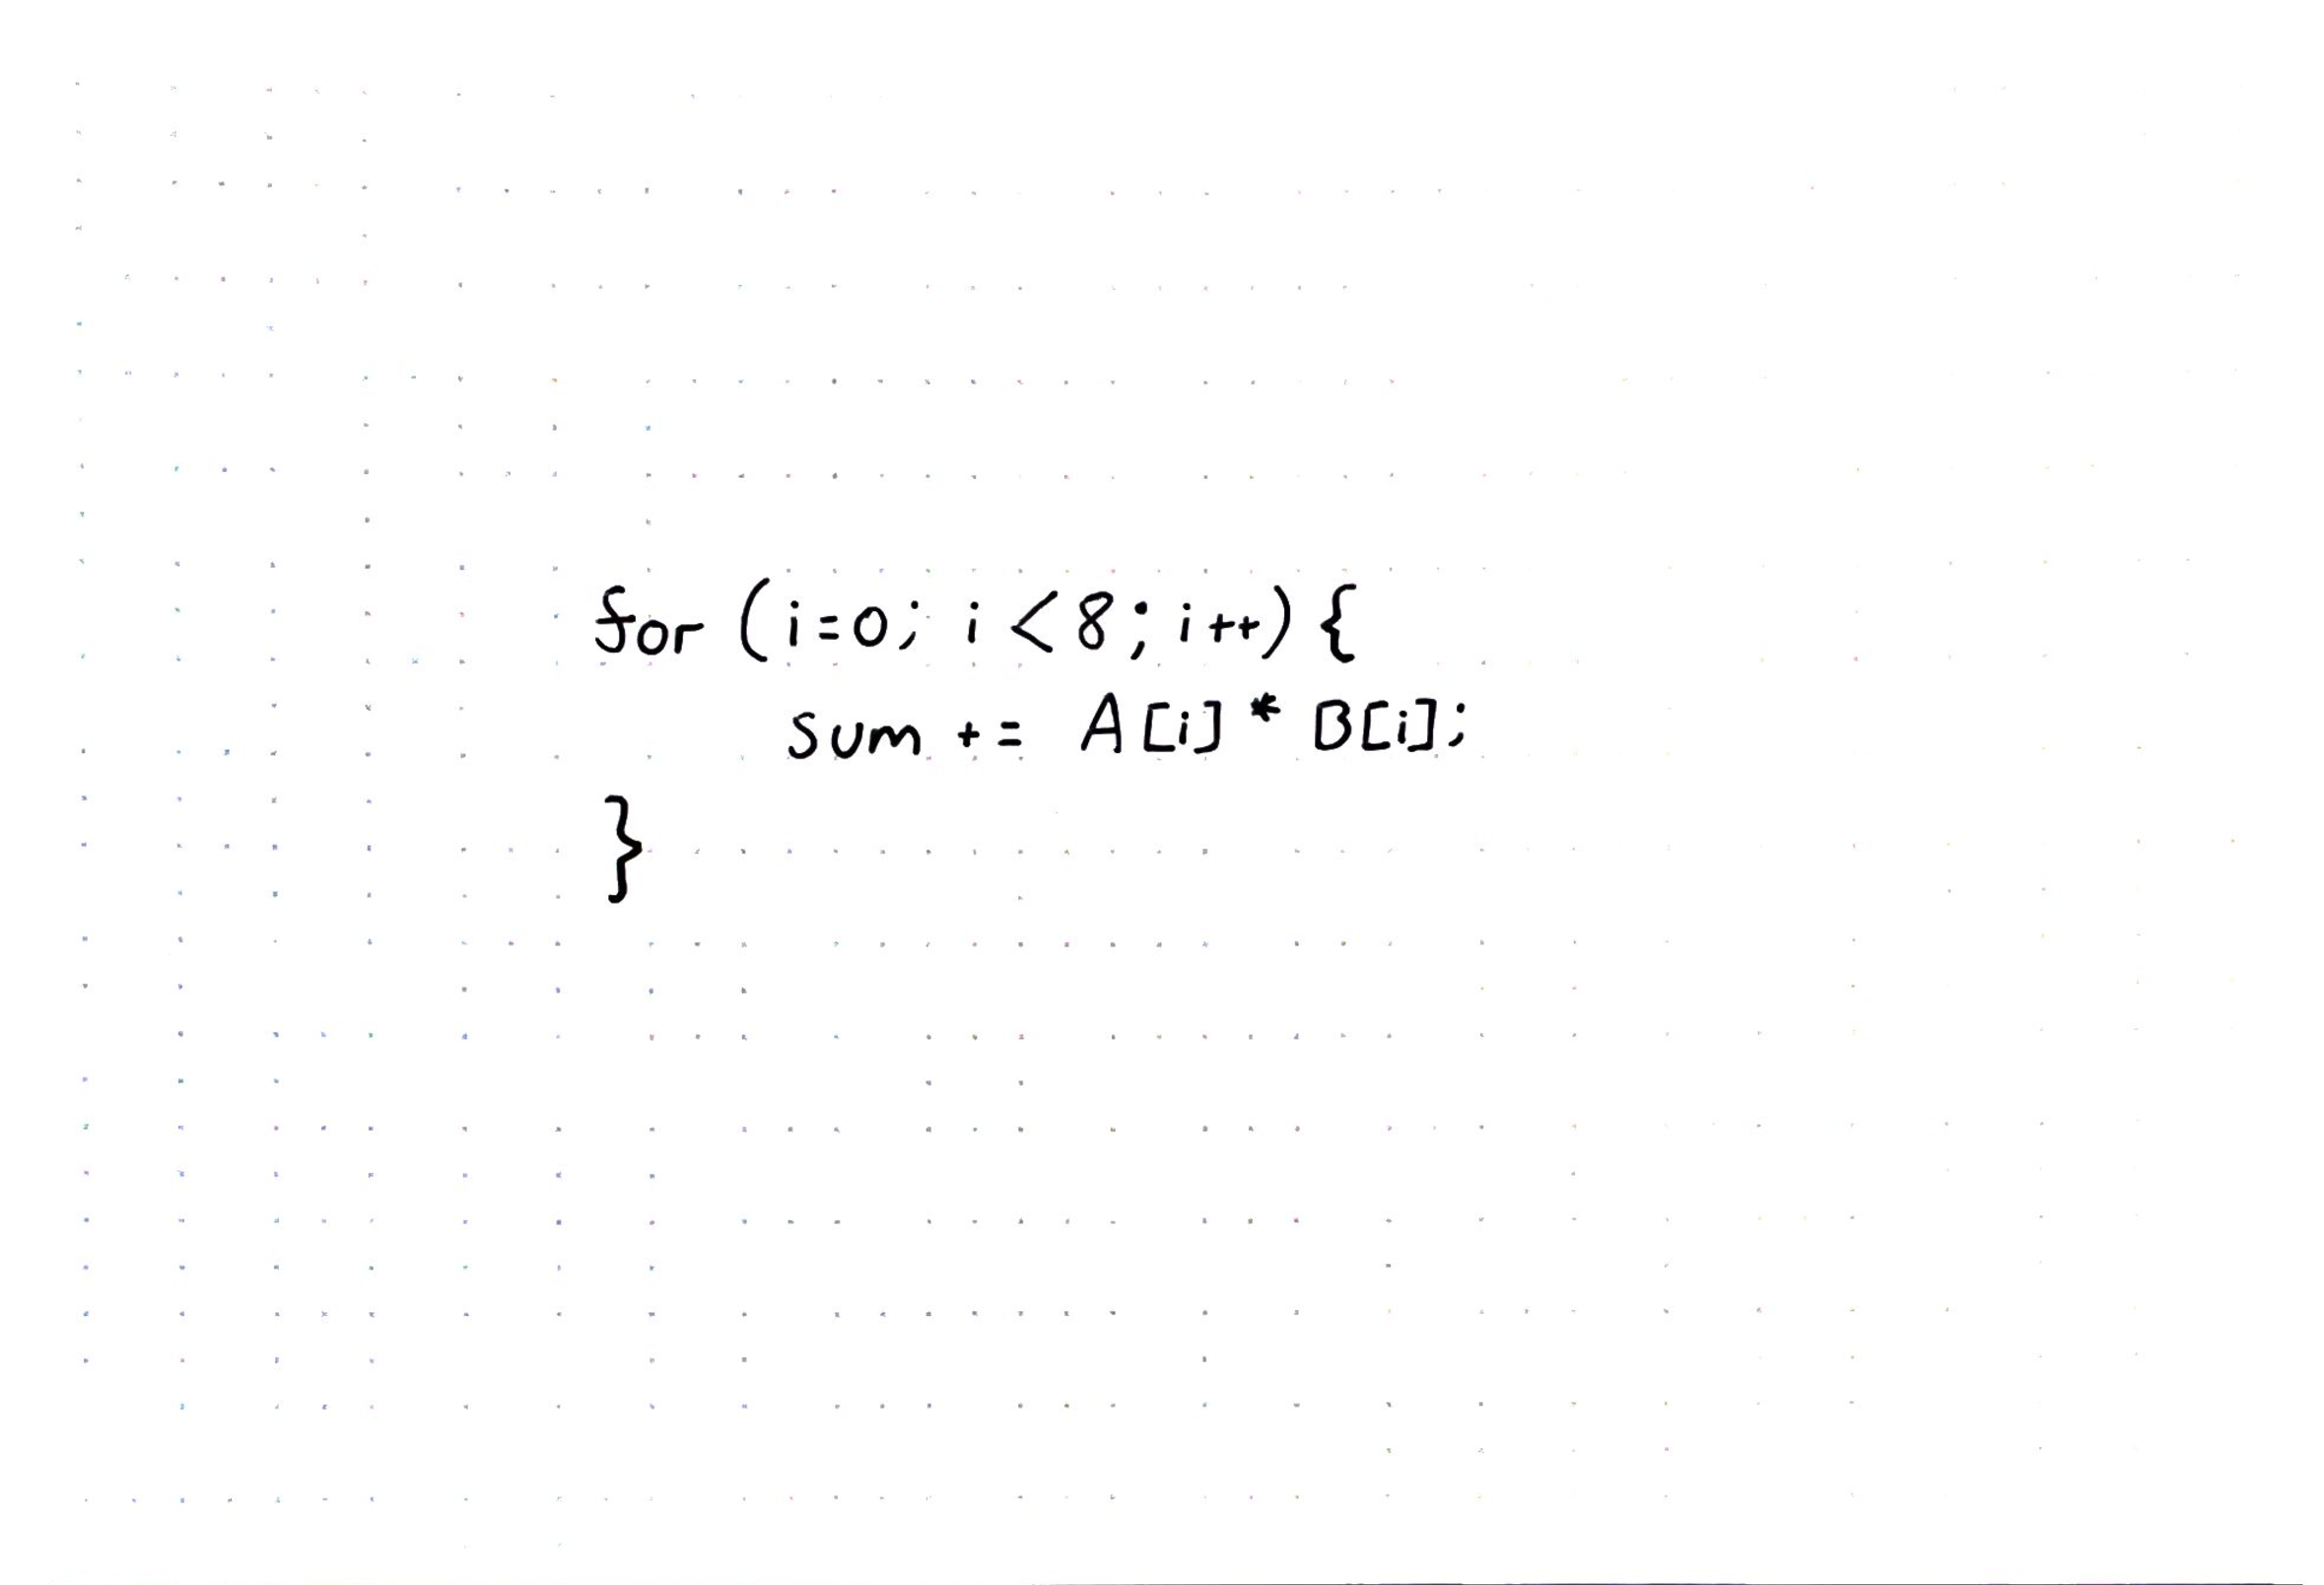 for (i=0; i<8; i++){
sum += A[i] * B[i];
}